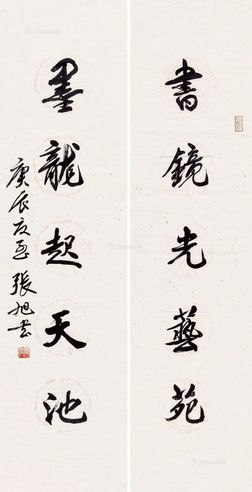 書鏡先藝苑
墨龍起天池
庚辰夏至張旭書